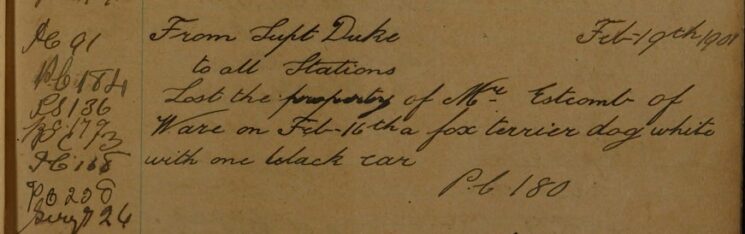 PC 91
PC 184
PS 136
PC 168
PC 208
Sergt 26
From Supt Duke Feb-19th 1901
to all Stations
Lost the property of Mr. Estcomb of
Ware on Feb-16th a fox terrier dog white
with one black ear
P.C 180